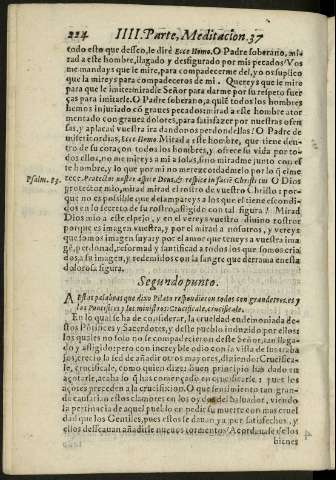 224 IIII. Parte, Meditacion. 37
todo esto que desseo, le dirè Ecce Homo. O Padre soberano, mi-
rad a este hombre, llagado y desfigurado por mis pecados! Vos
me mandays que le mire, para compadecerme del, yo os suplico
que la mireys para compadeceros de mi. Quereys que le mire
para que le imite: miradle Señor para darme por su respeto fuer-
ças para imitarle. O Padre soberano, a quiē todos los hombres
hemos injuriado cō graues pecados: mirad a este hombre ator
mentado con graues dolores, para satisfazer por nuestras ofen
sas, y aplacad vuestra ira dandonos perdon dellas! O Padre de
misericordias, Ecce Homo. Mirad a este hombre, que tiene den-
tro de su coraçon todos los hombres, y ofrece la vida por to-
dos ellos, no me mireys a mi a solas, sino miradme junto con es
te hombre, y lo que por mi no merezco dadmelo por lo q̄ el me
rece. Protector noster aspice Deus, & respice in faciē Christi tui. O Dios
Psalm. 83.
protector mio, mirad el rostro de vuestro Christo: por-
que no es possible que el dampareys a los que el tiene escondi-
dos en lo secreto de su rostro, afligido con tal figura! Mirad
Dios mio a este espejo, y en el vereys vuestro diuino rostro
porque es imagen vuestra, y por el mirad a nosotros, y vereys
que somos imagen suya: y por el amor que teneys a vuestra ima
gē, perdonad, reformad y santificad a todos los que somos cria
dos, a su imagen, y redemidos con la sangre que derrama en esta
dolorosa figura.
Segundo punto.
A Estas palabras que dixo Pilato respondieron todos con grandes vozes y
los Pontifices y los ministros: Crucificale, crucificale.
En lo qual se ha de considerar, la crueldad endemoniada des
tos Pōtifices y Sacerdotes, y deste pueblo induzido por ellos
los quales no solo no se compadecieron deste Señor, tan llaga-
do y afligido: pero con increyble odio con la vista de sus traba
jos, crecio la sed de añadir otros mayores, diziendo: Crucifica-
le, crucificale, como quien dize: Buen principio has dado en
açotarle, acaba lo q̄ has começado en crucificarle, y pues los
açotes preceden a la crucifixion. O que sentimiento tan gran-
da causarian estos clamores en los oydos del Saluador, viendo
la pertinacia de aquel pueblo en pedir su muerte con mas cruel
dad que los Gentiles, pues estos se dauan ya por satisfechos, y
ellos desseauan añadirle nueuos tormentos! Acordauase de los
bienes